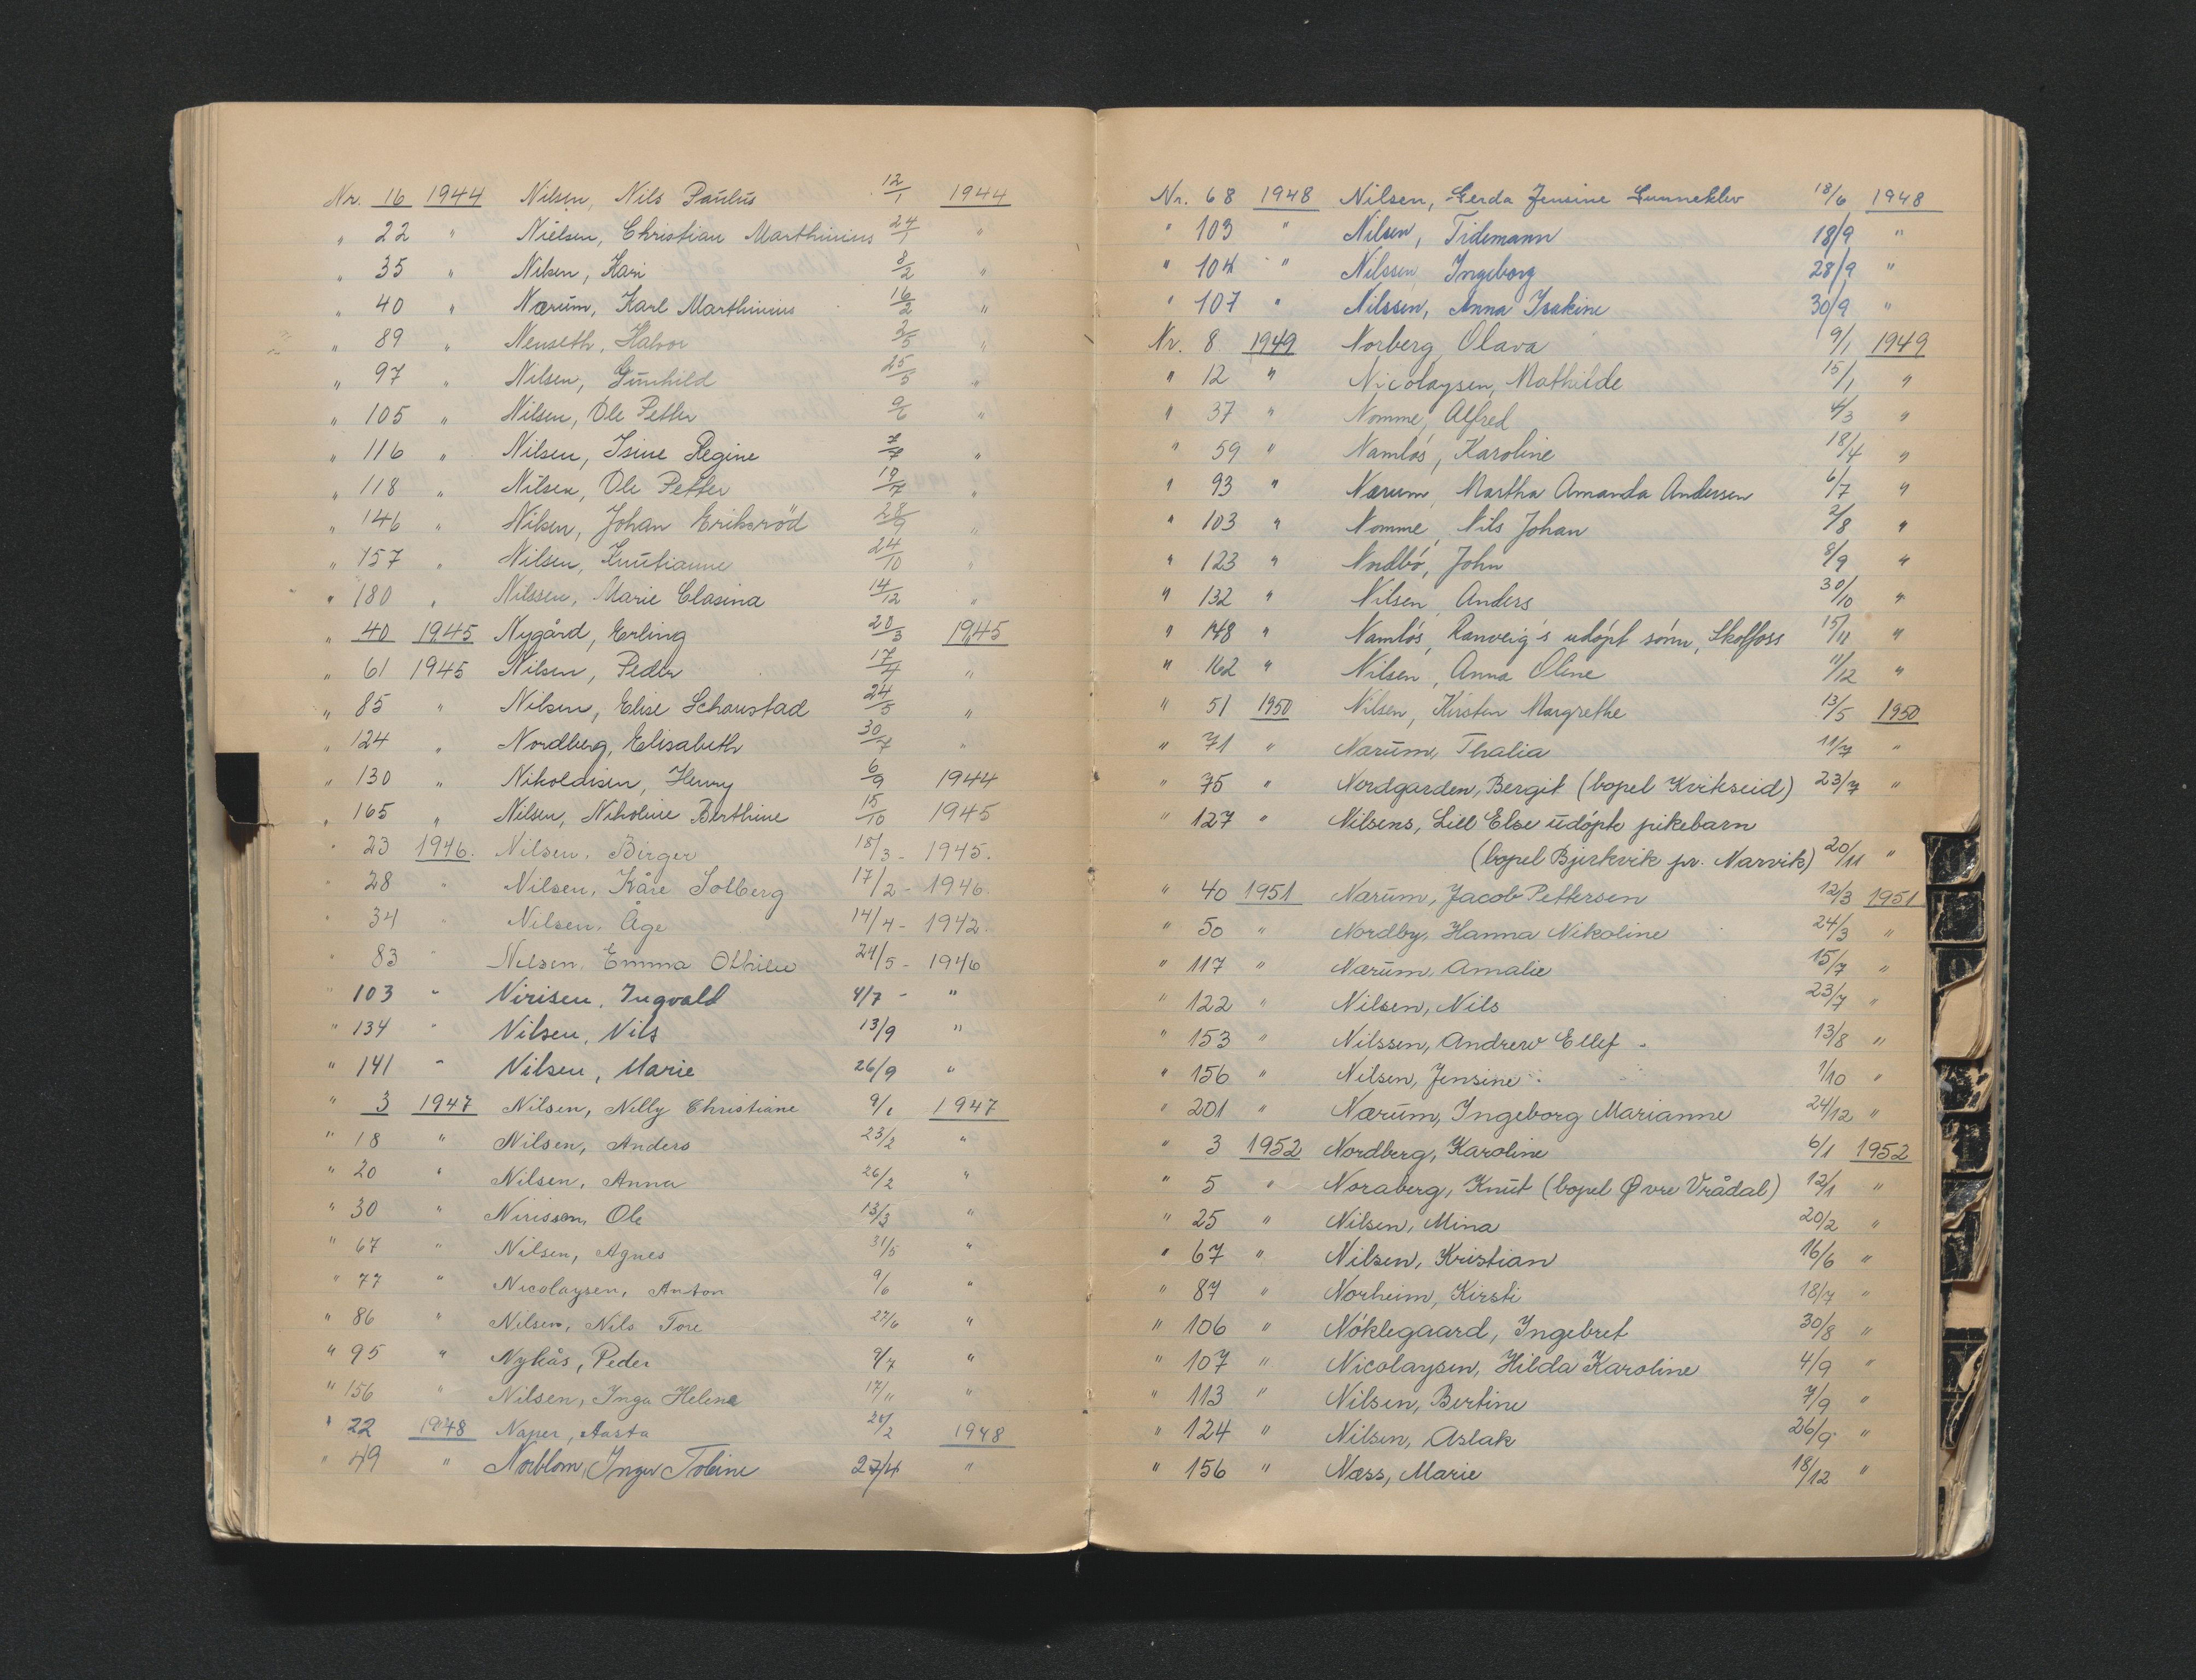 Nr. 16 1944 Nilsen, Nils Paulus 12/1 1944
" 22 " Nielsen, Christian Marthinius 24/1 "
" 35 " Nilsen, Kari 8/2 "
" 40 " Nærum, Karl Marthinius 16/2 "
" 89 " Nenseth, Halvor 3/5 "
" 97 " Nilsen, Gunhild 25/5 "
" 105 " Nilsen, Ole Petter 9/6 "
" 116 " Nilsen, Isine Regine 7/7 "
" 118 " Nilsen, Ole Petter 19/7 "
" 146 " Nilsen, Johan Eriksröd 28/9 "
" 157 " Nilsen, Knutianne 24/10 "
" 180 " Nilssen, Marie Clasina 14/12 "
" 40 1945 Nygård, Erling 20/3 1945
" 61 1945 Nilsen, Peder 17/4 "
" 85 " Nilsen, Elise Schaustad 24/5 "
" 124 " Nordberg, Elisabeth 30/7 "
" 130 " Nikoldisen, Henry 6/9 1944
" 165 " Nilsen, Nikoline Berthine 15/10 1945
" 23 1946. Nilsen, Birger 18/3 - 1945.
" 28 " Nilsen, Kåre Solberg 17/2 - 1946.
" 34 " Nilsen, Åge 14/4 - 1942.
" 83 " Nilsen, Emma Othilie 24/5 - 1946
" 103 " Nirisen, Ingvald 4/7 - "
" 134 " Nilsen, Nils 13/9 "
" 141 " Nilsen, Marie 26/9 "
" 3 1947 Nilsen, Nelly Christiane 9/1 1947
" 18 " Nilsen, Anders 23/2 "
" 20 " Nilsen, Anna 26/2 "
" 30 " Nirisson, Ole 13/3 "
" 67 " Nilsen, Agnes 31/5 "
" 77 " Nicolaysen, Anton 9/6 "
" 86 " Nilsen, Nils Tore 27/6 "
" 95 " Nykås, Peder 9/7 "
" 156 " Nilsen, Inga Helene 17/11 "
" 22 1948 Naper, Aasta 24/2 1948
" 49 " Norblom, Inger Tobine 27/4 "
Nr. 68 1948 Nilsen, Gerda Jensine Gunneklev 18/6 1948
" 103 " Nilsen, Tidemann 18/9 "
" 104 " Nilssen Ingeborg 28/9 "
" 107 " Nilssen, Anna Isakine 30/9 "
Nr. 8 1949 Norberg, Olava 9/1 1949
" 12 " Nicolaysen, Mathilde 15/1 "
" 37 " Nomme, Alfred 4/3 "
" 59 " Namlós, Karoline 18/4 "
" 93 " Nærum, Martha Amanda Andersen 6/7 "
" 103 " Nomme, Nils Johan 2/8 "
" 123 " Nordbó, John 8/9 "
" 132 " Nilsen, Anders 30/10 "
" 148 " Namlós, Ranveig's udópt sónn, Skotfoss 15/11 "
" 162 " Nilsen, Anna Oline 11/12 "
" 51 1950 Nilsen, Kirsten Margrethe 13/5 1950
" 71 " Nærum, Thalia 11/7 "
" 75 " Nordgarden, Bergit (bopel Kvitseid) 23/7 "
" 127 " Nilsens, Lill Else udópte pikebarn
(bopel Bjerkvik pr. Narvik) 20/11 "
" 40 1951 Nærum, Jacob Pettersen 12/3 1951
" 50 " Nordby, Hanna Nikoline 24/3 "
" 117 " Nærum, Amalie 15/7 "
" 122 " Nilsen, Nils 23/7 "
" 153 " Nilssen, Andrew Ellef 13/8 "
" 156 " Nilsen, Jensine 1/10 "
" 201 " Nærum, Ingeborg Marianne 24/12 "
" 3 1952 Nordberg, Karoline 6/1 1952
" 5 " Noraberg, Knut (bopel Øvre Vrådal) 12/1 "
" 25 " Nilsen, Mina 20/2 "
" 67 " Nilsen, Kristian 16/6 "
" 87 " Norheim, Kirsti 18/7 "
" 106 " Nóklegaard, Ingebret 30/8 "
" 107 " Nicolaysen, Hilda Karoline 4/9 "
" 113 " Nilsen, Bertine 7/9 "
" 124 " Nilsen, Aslak 26/9 "
" 156 " Næss, Marie 18/12 "